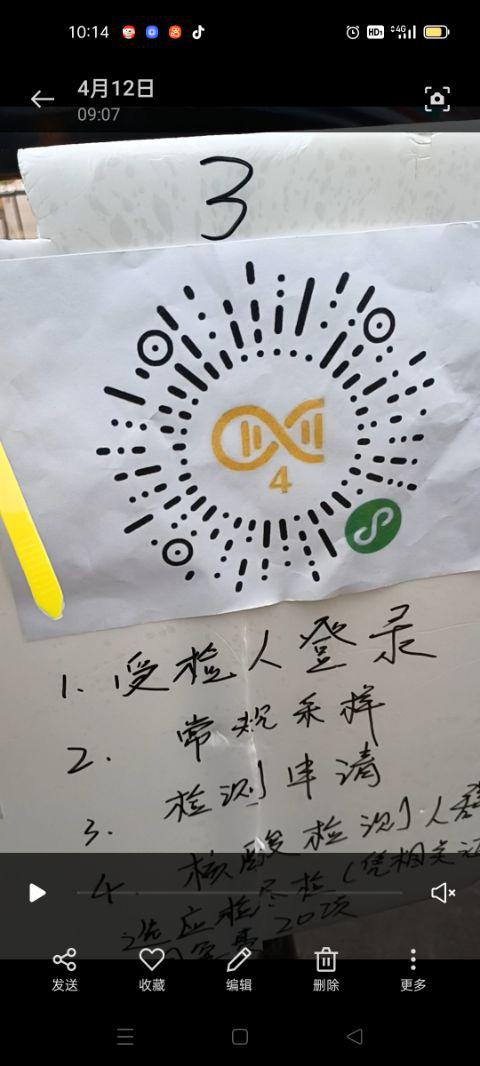 10:14
HD1 4G
4月12日
09:07
3
4
1. 受检人登录
2. 常规采样
检测申请
3. 核酸检测人群
4. 选应检尽检(凭相关证
20项
发送 收藏 编辑 删除 更多